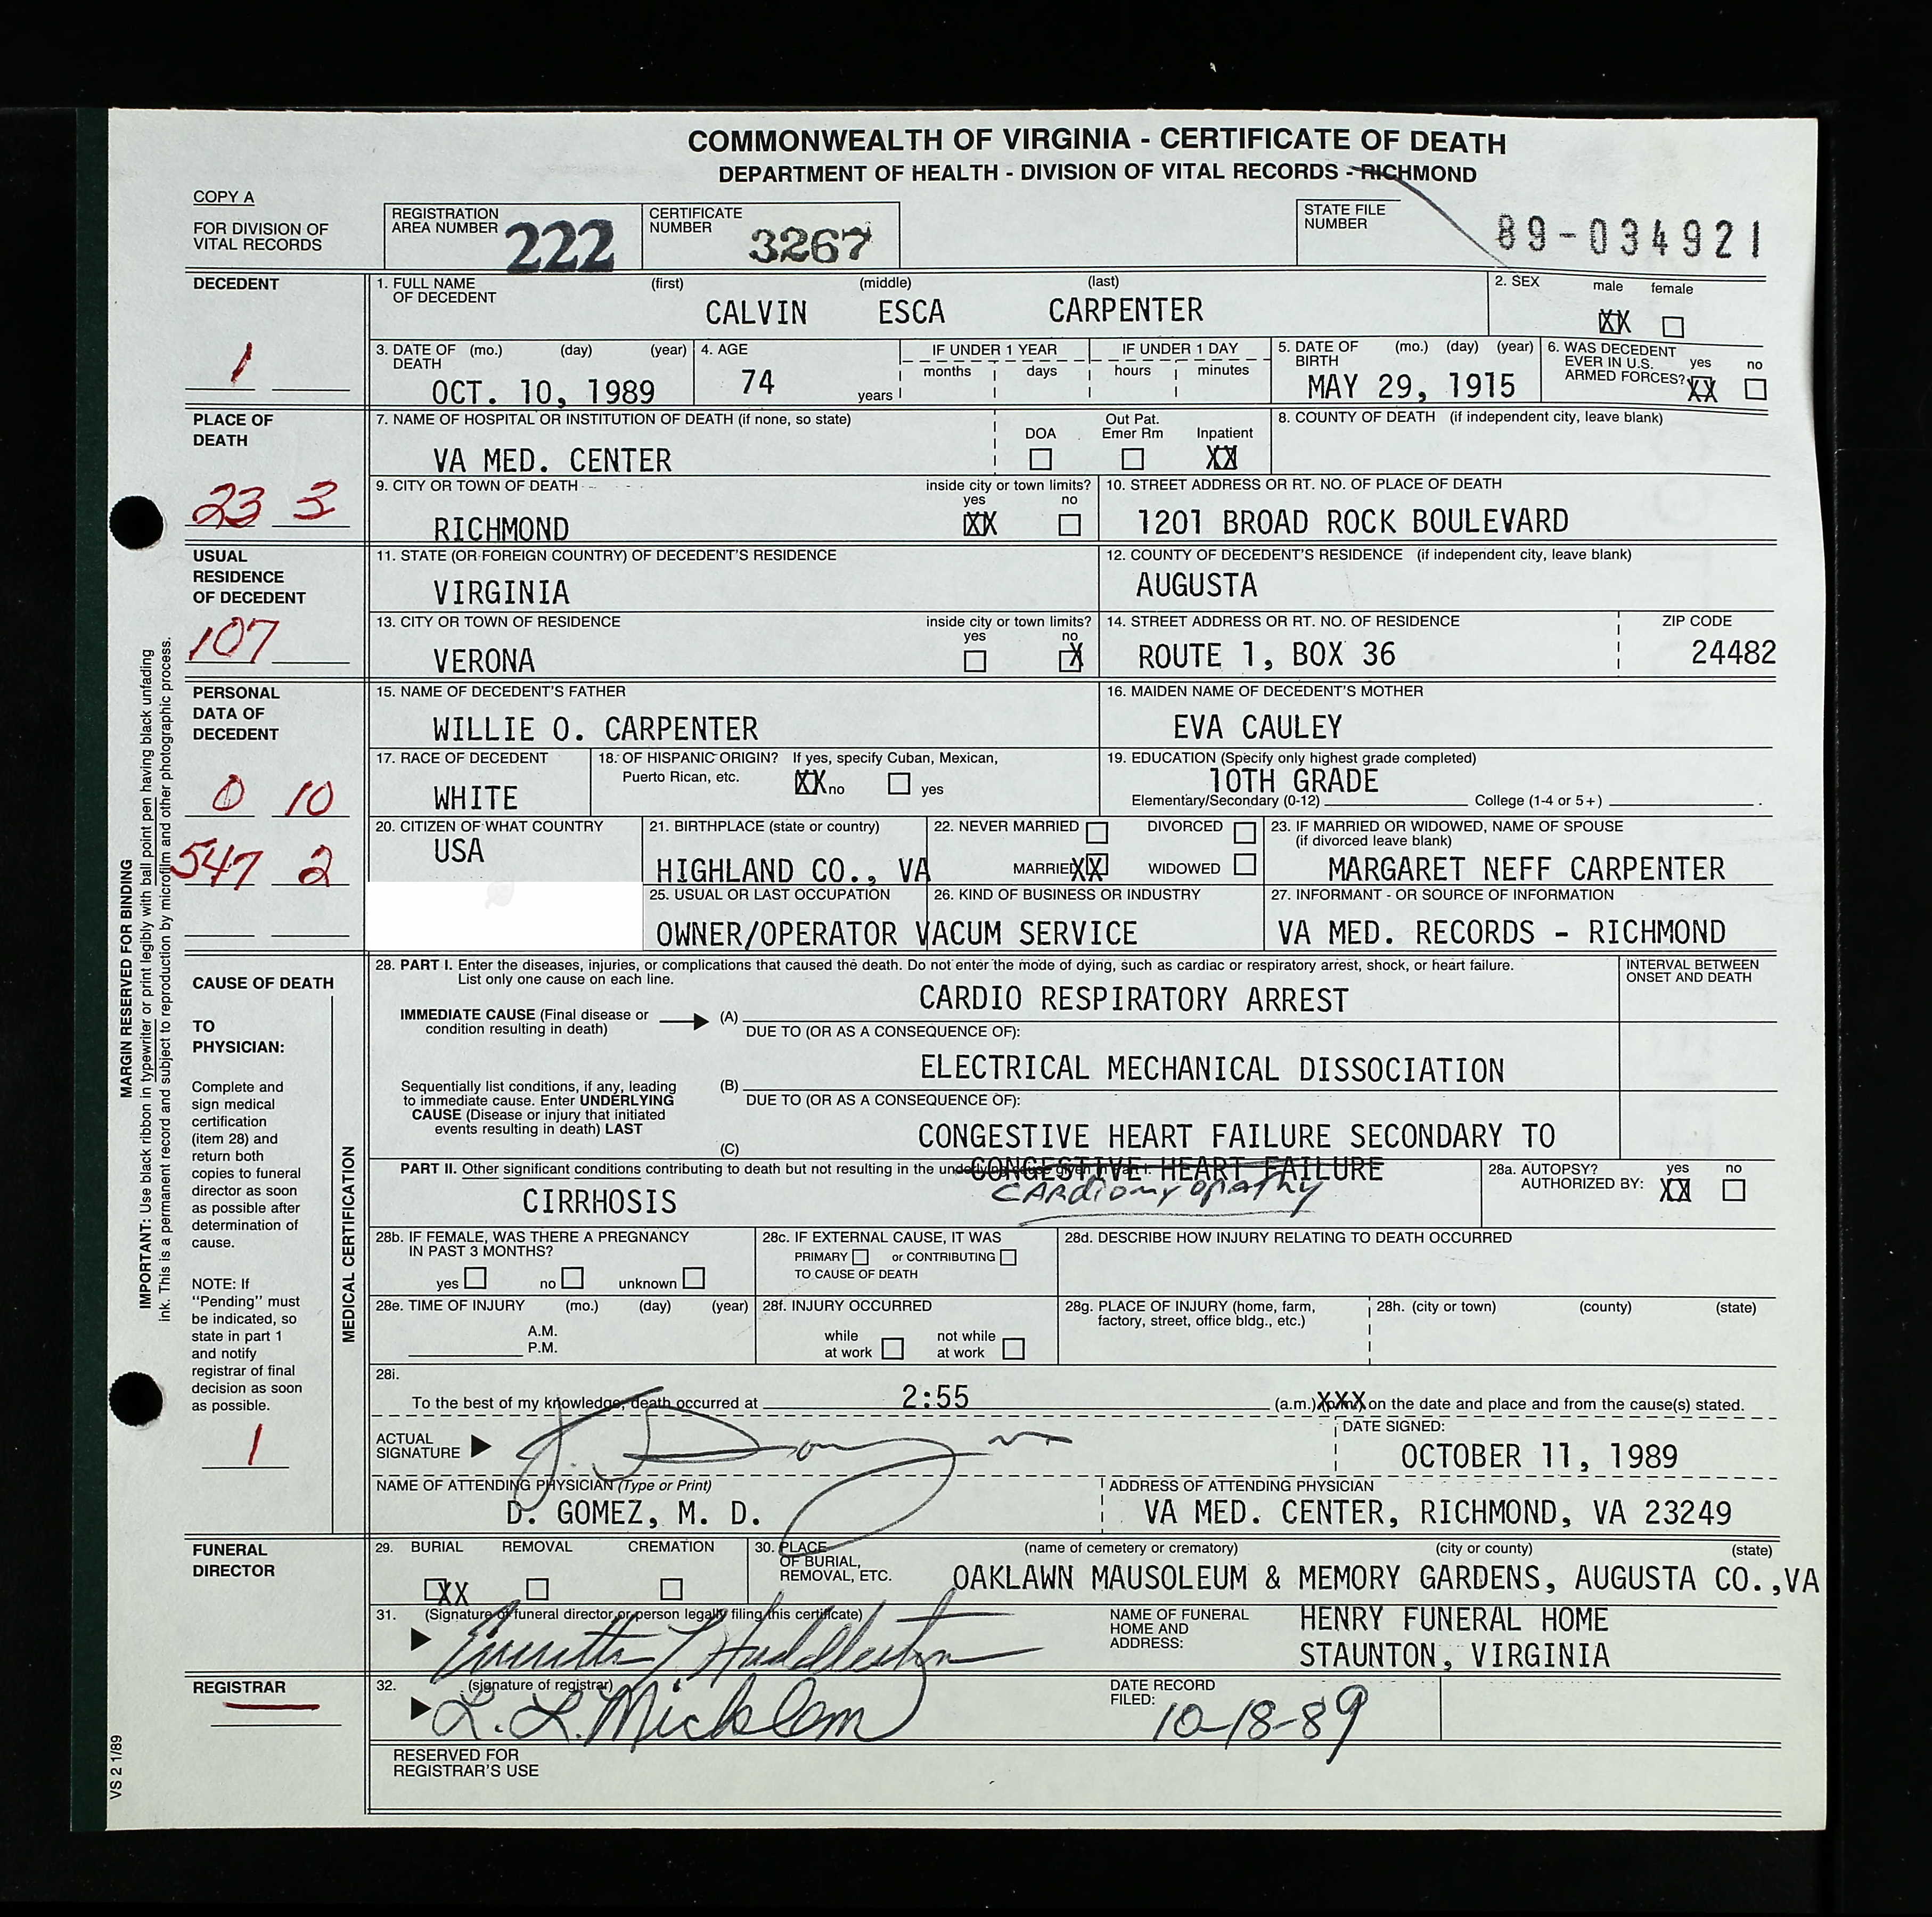 COMMONWEALTH OF VIRGINIA - CERTIFICATE OF DEATH
DEPARTMENT OF HEALTH - DIVISION OF VITAL RECORDS - RICHMOND
COPY A
FOR DIVISION OF
VITAL RECORDS
REGISTRATION
AREA NUMBER 222
CERTIFICATE
NUMBER 3267
STATE FILE
NUMBER 89-034921
DECEDENT
1
1. FULL NAME (first) (middle) (last)
OF DECEDENT
CALVIN ESCA CARPENTER
2. SEX male female
XX
3. DATE OF (mo.) (day) (year)
DEATH
OCT. 10, 1989
4. AGE
74 years
IF UNDER 1 YEAR
months days
IF UNDER 1 DAY
hours minutes
5. DATE OF (mo.) (day) (year)
BIRTH
MAY 29, 1915
6. WAS DECEDENT
EVER IN U.S. yes no
ARMED FORCES? XX
PLACE OF
DEATH
23 3
7. NAME OF HOSPITAL OR INSTITUTION OF DEATH (if none, so state)
VA MED. CENTER
DOA
Out Pat.
Emer Rm
Inpatient
XX
8. COUNTY OF DEATH (if independent city, leave blank)
9. CITY OR TOWN OF DEATH
RICHMOND
inside city or town limits?
yes no
XX
10. STREET ADDRESS OR RT. NO. OF PLACE OF DEATH
1201 BROAD ROCK BOULEVARD
USUAL
RESIDENCE
OF DECEDENT
107
11. STATE (OR FOREIGN COUNTRY) OF DECEDENT'S RESIDENCE
VIRGINIA
12. COUNTY OF DECEDENT'S RESIDENCE (if independent city, leave blank)
AUGUSTA
13. CITY OR TOWN OF RESIDENCE
VERONA
inside city or town limits?
yes no
X
14. STREET ADDRESS OR RT. NO. OF RESIDENCE
ROUTE 1, BOX 36
ZIP CODE
24482
PERSONAL
DATA OF
DECEDENT
0 10
547 2
15. NAME OF DECEDENT'S FATHER
WILLIE O. CARPENTER
16. MAIDEN NAME OF DECEDENT'S MOTHER
EVA CAULEY
17. RACE OF DECEDENT
WHITE
18. OF HISPANIC ORIGIN? If yes, specify Cuban, Mexican,
Puerto Rican, etc. XX no yes
19. EDUCATION (Specify only highest grade completed)
10TH GRADE
Elementary/Secondary (0-12) College (1-4 or 5+) .
20. CITIZEN OF WHAT COUNTRY
USA
21. BIRTHPLACE (state or country)
HIGHLAND CO., VA
22. NEVER MARRIED DIVORCED
MARRIED XX WIDOWED
23. IF MARRIED OR WIDOWED, NAME OF SPOUSE
(if divorced leave blank)
MARGARET NEFF CARPENTER
25. USUAL OR LAST OCCUPATION
OWNER/OPERATOR
26. KIND OF BUSINESS OR INDUSTRY
VACUM SERVICE
27. INFORMANT - OR SOURCE OF INFORMATION
VA MED. RECORDS - RICHMOND
CAUSE OF DEATH
TO
PHYSICIAN:
Complete and
sign medical
certification
(item 28) and
return both
copies to funeral
director as soon
as possible after
determination of
cause.
NOTE: If
"Pending" must
be indicated, so
state in part 1
and notify
registrar of final
decision as soon
as possible.
1
MEDICAL CERTIFICATION
28. PART I. Enter the diseases, injuries, or complications that caused the death. Do not enter the mode of dying, such as cardiac or respiratory arrest, shock, or heart failure.
List only one cause on each line.
INTERVAL BETWEEN
ONSET AND DEATH
CARDIO RESPIRATORY ARREST
IMMEDIATE CAUSE (Final disease or (A)
condition resulting in death)
DUE TO (OR AS A CONSEQUENCE OF):
ELECTRICAL MECHANICAL DISSOCIATION
Sequentially list conditions, if any, leading (B)
to immediate cause. Enter UNDERLYING
DUE TO (OR AS A CONSEQUENCE OF):
CAUSE (Disease or injury that initiated
events resulting in death) LAST
CONGESTIVE HEART FAILURE SECONDARY TO
(C)
CONGESTIVE HEART FAILURE
CARdiomyopathy
PART II. Other significant conditions contributing to death but not resulting in the underlying cause given in Part I.
CIRRHOSIS
28a. AUTOPSY? yes no
AUTHORIZED BY: XX
28b. IF FEMALE, WAS THERE A PREGNANCY
IN PAST 3 MONTHS?
yes no unknown
28c. IF EXTERNAL CAUSE, IT WAS
PRIMARY or CONTRIBUTING
TO CAUSE OF DEATH
28d. DESCRIBE HOW INJURY RELATING TO DEATH OCCURRED
28e. TIME OF INJURY (mo.) (day) (year)
A.M.
P.M.
28f. INJURY OCCURRED
while not while
at work at work
28g. PLACE OF INJURY (home, farm,
factory, street, office bldg., etc.)
28h. (city or town) (county) (state)
28i.
To the best of my knowledge, death occurred at 2:55 (a.m.) (p.m.) XXX on the date and place and from the cause(s) stated.
ACTUAL
SIGNATURE
DATE SIGNED:
OCTOBER 11, 1989
NAME OF ATTENDING PHYSICIAN (Type or Print)
D. GOMEZ, M. D.
ADDRESS OF ATTENDING PHYSICIAN
VA MED. CENTER, RICHMOND, VA 23249
FUNERAL
DIRECTOR
29. BURIAL REMOVAL CREMATION
XX
30. PLACE (name of cemetery or crematory) (city or county) (state)
OF BURIAL,
REMOVAL, ETC.
OAKLAWN MAUSOLEUM & MEMORY GARDENS, AUGUSTA CO.,VA
31. (Signature of funeral director or person legally filing this certificate)
Huddleston
NAME OF FUNERAL
HOME AND
ADDRESS:
HENRY FUNERAL HOME
STAUNTON, VIRGINIA
REGISTRAR
32. (signature of registrar)
L. L. Micklem
DATE RECORD
FILED: 10-18-89
RESERVED FOR
REGISTRAR'S USE
MARGIN RESERVED FOR BINDING
IMPORTANT: Use black ribbon in typewriter or print legibly with ball point pen having black unfading
ink. This is a permanent record and subject to reproduction by microfilm and other photographic process.
VS 2 1/89